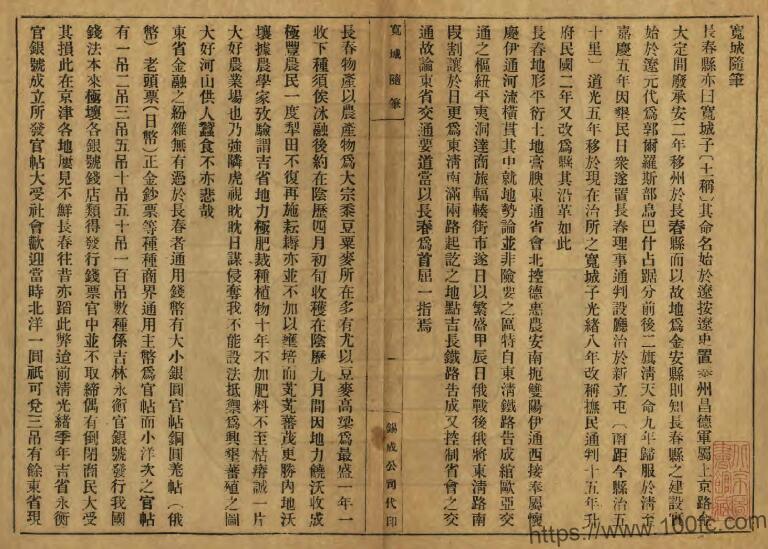 寬城隨筆
長春縣亦曰寬城子（土稱）其命名始於遼按遼史置泰州昌德軍屬上京路金
大定間廢承安二年移州於長春縣而以故地爲金安縣則知長春縣之建設實
始於遼元代爲郭爾羅斯部烏巴什占踞分前後二旗淸天命九年歸服於淸至
嘉慶五年因墾民日衆遂置長春理事通判設廳治於新立屯（南距今縣治五
十里）道光五年移於現在治所之寬城子光緖八年改稱撫民通判十五年升
府民國二年又改爲縣其沿革如此
長春地形平衍土地膏腴東通省會北控德惠農安南扼雙陽伊通西接奉屬懷
慶伊通河流橫貫其中就地勢論並非險要之區特自東淸鐵路告成綰歐亞交
通之樞紐乎夷洞達商旅輻輳街市遂日以繁盛甲辰日俄戰後俄將東淸路南
段割讓於日更爲東淸南滿兩路起訖之地點吉長鐵路告成又控制省會之交
通故論東省交通要道當以長春爲首屈一指焉
寬城隨筆
一
錫成公司代印
長春物產以農產物爲大宗黍豆粟麥所在多有尤以豆麥高梁爲最盛一年一
收下種須俟冰融後約在陰歷四月初旬收穫在陰歷九月間因地力饒沃收成
極豐農民一度犁田不復再施耘耨亦並不加以壅培而芃芃蕃茂更勝內地沃
壤據農學家攷驗謂吉省地力極肥栽種植物十年不加肥料不至枯瘠誠一片
大好農業場也乃強隣虎視眈眈日謀侵奪我不能設法抵禦爲興墾蕃殖之圖
大好河山供人蠶食不亦悲哉
東省金融之紛雜無有過於長春者通用錢幣有大小銀圓官帖銅圓羌帖（俄
幣）老頭票（日幣）正金鈔票等種種商界通用主幣爲官帖而小洋次之官帖
有一吊二吊三吊五吊十吊五十吊一百吊數種係吉林永衡官銀號發行我國
錢法本來極壞各銀號錢店類得發行錢票官中並不取締偶有倒閉商民大受
其損此在京津各地屢見不鮮長春往昔亦蹈此弊迨前淸光緖季年吉省永衡
官銀號成立所發官帖大受社會歡迎當時北洋一圓祇可兌三吊有餘東省現
https://www.100fc.com